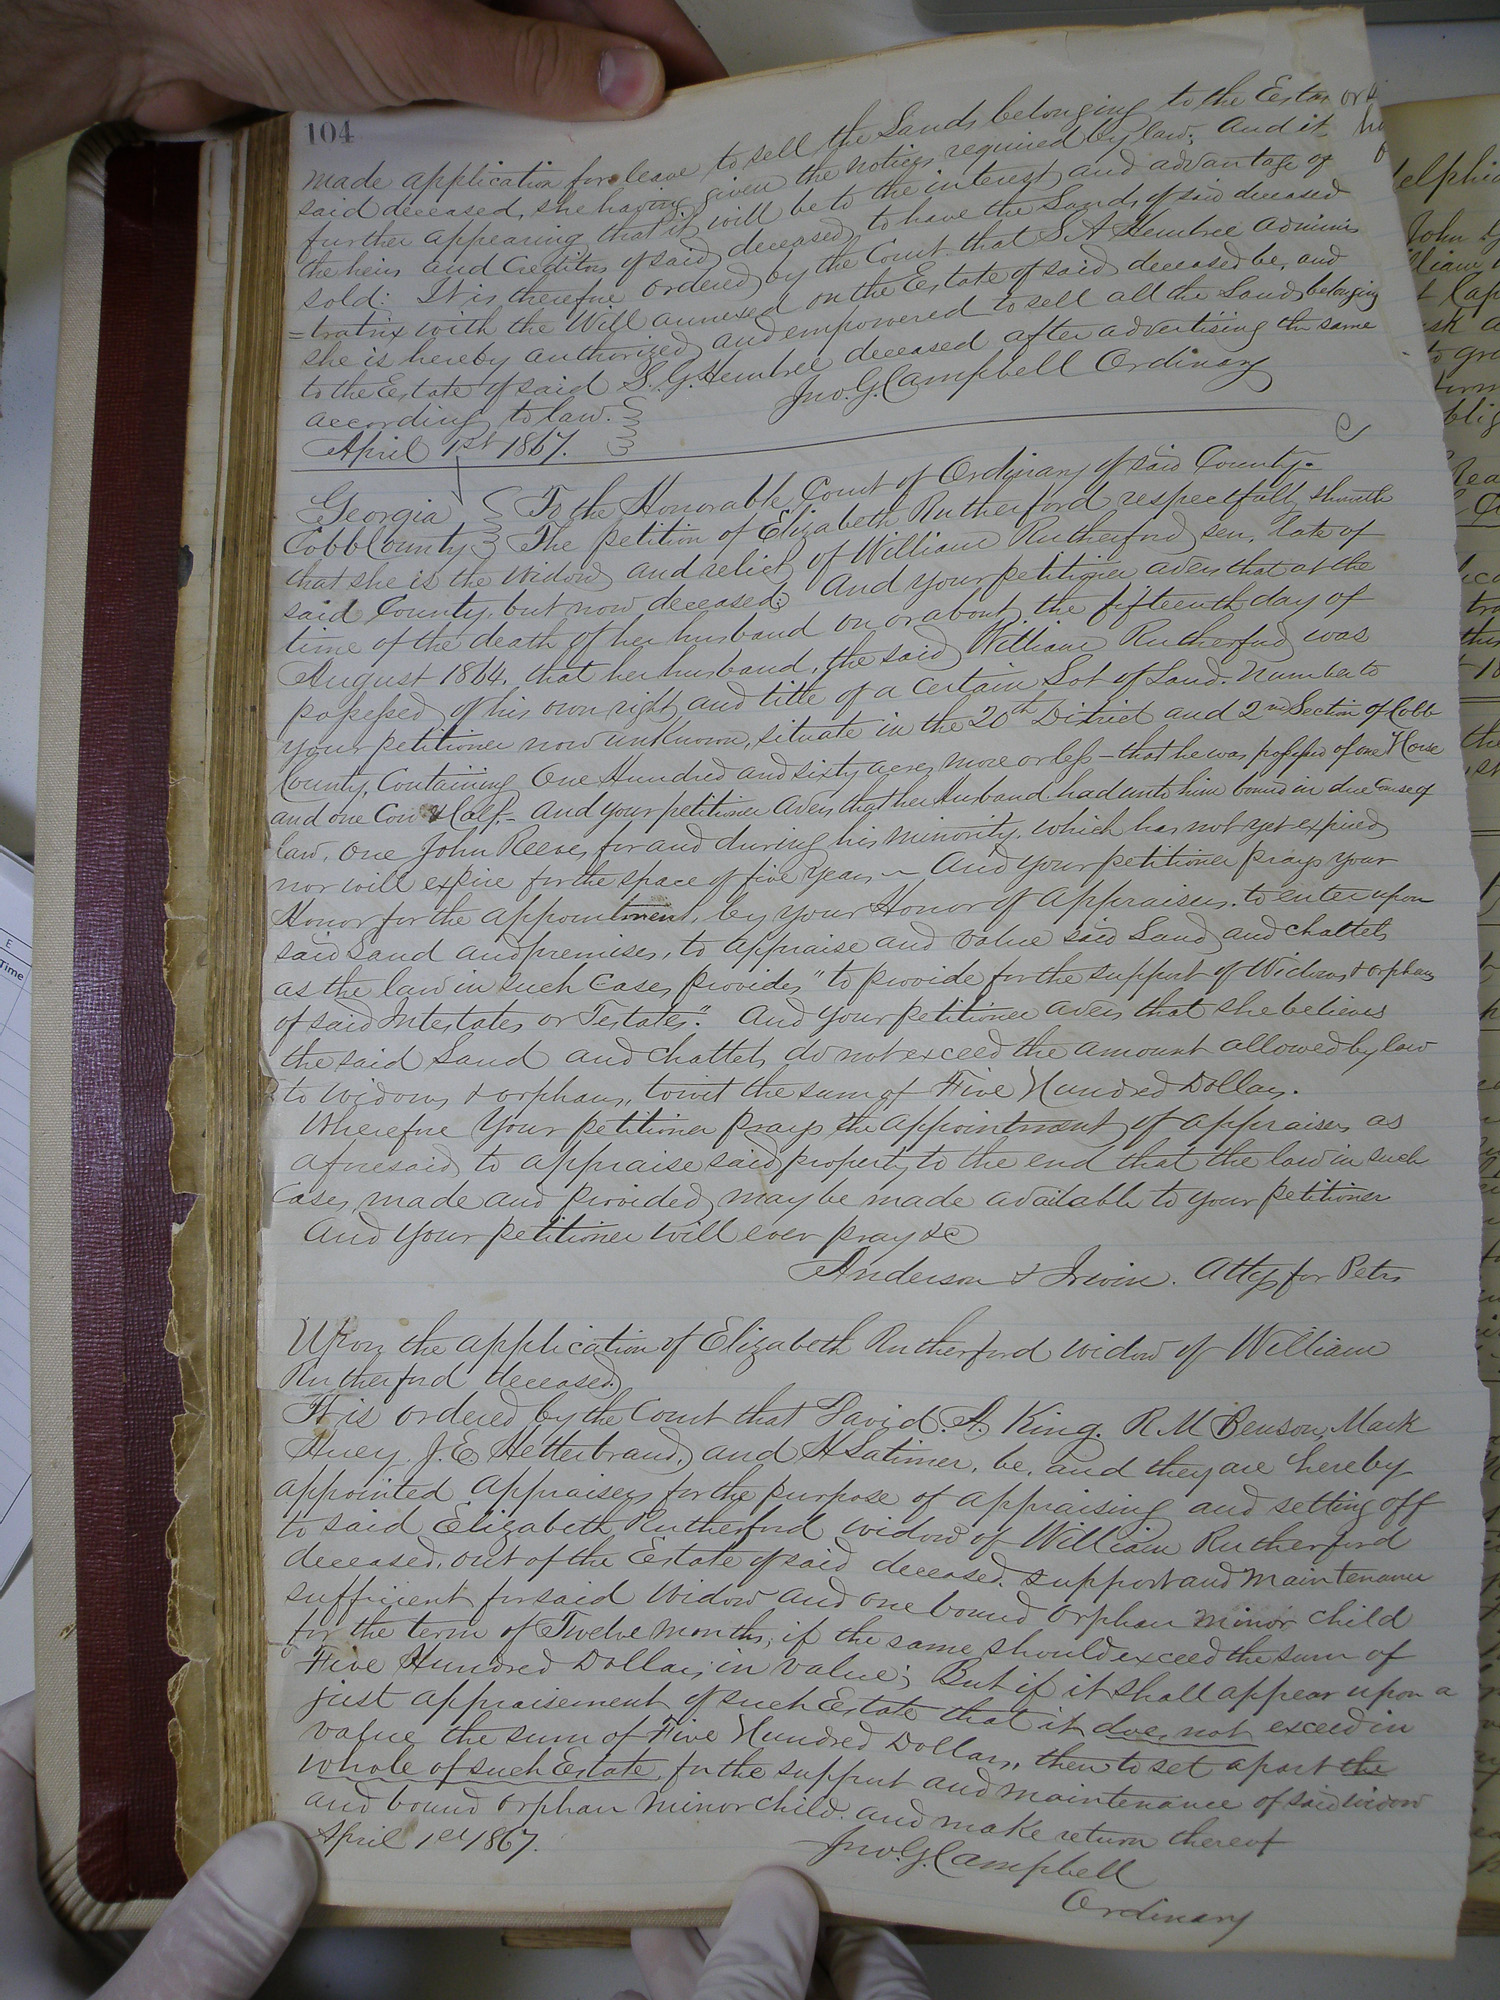 104
made application for leave to sell the Lands belonging to the Estate
said deceased, she having given the notices required by law; And it
further appearing that it will be to the interest and advantage of
the heirs and Creditors of said deceased, to have the Lands of said deceased
sold: It is therefore ordered by the Court that S A Hembree Adminis
=tratrix with the Will annexed on the Estate of said deceased be, and
she is hereby authorized and empowered to sell all the Lands belonging
to the Estate of said S. G. Hembree deceased after advertising the same
according to law.
April 1st 1867. Jno. G. Campbell Ordinary
Georgia To the Honorable Court of Ordinary of said County.
Cobb County The petition of Elizabeth Rutherford respectfully showeth
that she is the widow and relict of William Rutherford sen. late of
said County, but now deceased; And your petitioner avers that at the
time of the death of her husband on or about the fifteenth day of
August 1864, that her husband, the said William Rutherford was
possessed of his own right and title of a certain Lot of Land. number to
your petitioner now unknown, situate in the 20th District and 2nd Section of Cobb
County, Containing One Hundred and sixty acres more or less – that he was possessed of one Horse
and one Cow & Calf. – And your petitioner avers that her Husband had unto him bound in due course of
law, one John Reeves for and during his minority, which has not yet expired
nor will expire for the space of five years – And your petitioner prays your
Honor for the appointment, by your Honor of appraisers. to enter upon
said Land and premises, to appraise and value said Land and chattels
as the law in such Cases provides, "to provide for the support of Widows & orphans
of said Intestates or Testates." And your petitioner avers that she believes
the said Land and chattels do not exceed the amount allowed by law
to widows & orphans, towit the sum of Five Hundred Dollars.
Wherefore Your petitioner prays the appointment of appraisers as
aforesaid to appraise said property to the end that the law in such
Cases made and provided may be made available to your petitioner
And your petitioner will ever pray &c
Anderson & Irwin. Attys for Petr
Upon the application of Elizabeth Rutherford widow of William
Rutherford deceased
It is ordered by the Court that David. A. King. R. M Benson, Mark
Huey, J. E. Hetterbrand, and H Latimer, be, and they are hereby
appointed appraisers for the purpose of appraising and setting off
to said Elizabeth Rutherford widow of William Rutherford
deceased, out of the Estate of said deceased. support and maintenance
sufficient for said widow and one bound orphan minor child
for the term of Twelve months, if the same should exceed the sum of
Five Hundred Dollars in value; But if it shall appear upon a
just appraisement of such Estate that it does not exceed in
value the sum of Five Hundred Dollars, then to set apart the
whole of such Estate for the support and maintenance of said widow
and bound orphan minor child. and make return thereof
April 1st 1867. Jno. G. Campbell
Ordinary
E
Time